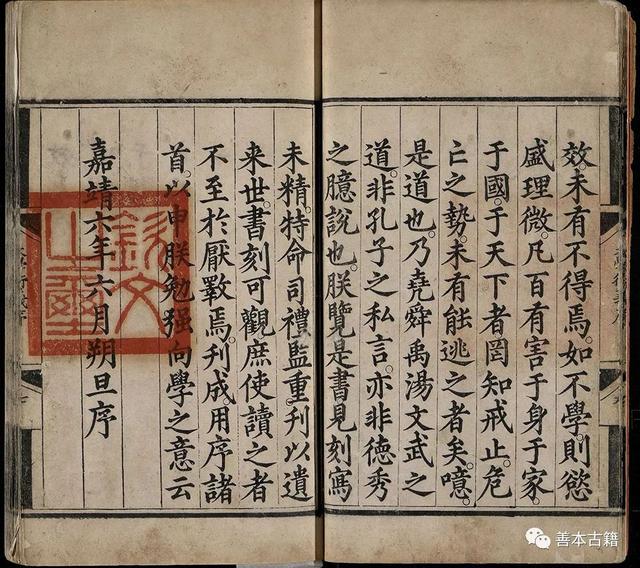 效。未有不得焉。如不學。則慾
盛理微。凡百有害于身于家。
于國。于天下者。罔知戒止。危
亡之勢。未有能逃之者矣。噫。
是道也。乃堯舜禹湯文武之
道。非孔子之私言。亦非德秀
之臆說也。朕覽是書。見刻寫
未精。特命司禮監重刊。以遺
来世。書刻可觀。庶使讀之者
不至於厭斁焉。刋成。用序諸
首。以申朕勉强向學之意云
嘉靖六年六月朔旦序
欽文之璽
善本古籍